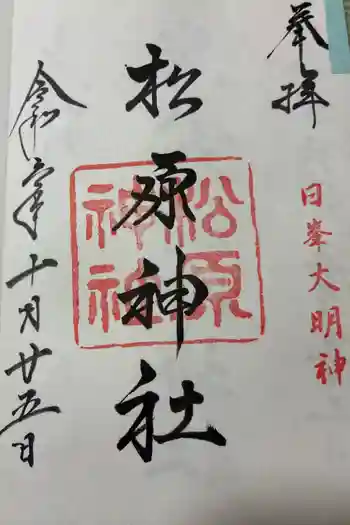 奉拝
日峯大明神
松原神社
松原
神社
令和六年十月廿五日